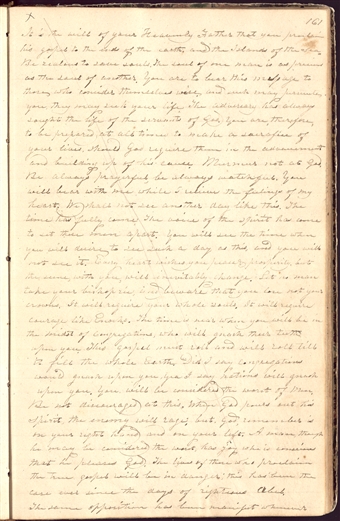 161
It is the will of your Heavenly Father that you preach
his gospel to the ends of the earth, and the Islands of the Sea.
Be zealous to save souls. The soul of one man is as precious
as the soul of another. You are to bear this message to
those who consider themselves wise, and such may persecute
you they may seek your life. The adversary has always
sought the life of the servants of God, you are therefore
to be prepared at all times to make a sacrifice of
your lives, should God require them in the advancement
and building up of his cause. Murmur not at God.
Be always prayerful, be always watchful. You
will bear with me while I relieve the feelings of my
heart. We shall not see another day like this. The
time has fully come. The voice of the spirit has come
to set these men apart. You will see the time when
you will desire to see such a day as this and you will
not see it. Every heart wishes you peace & prosperity, but
the scene with you will inevitably change. Let no man
take your bishoprick, and beware that you lose not your
crowns. It will require your whole souls. It will require
courage like Enoch's. The time is near when you will be in
the midst of congregations who will gnash their teeth
upon you. This gospel must roll and will roll till
it fills the whole earth. Did I say congregations
would gnash upon you, yea, I say, nations will gnash
upon you. You will be considered the worst of men.
Be not discouraged at this. When God pours out his
spirit, the enemy will rage, but God remember is
on your right hand and on your left. A man, though
he may be considered the worst, has joy who is conscious
that he pleases God. The lives of those who proclaim
the true gospel will be in danger, this has been the
case ever since the days of righteous Abel.
The same opposition has been manifest whenever